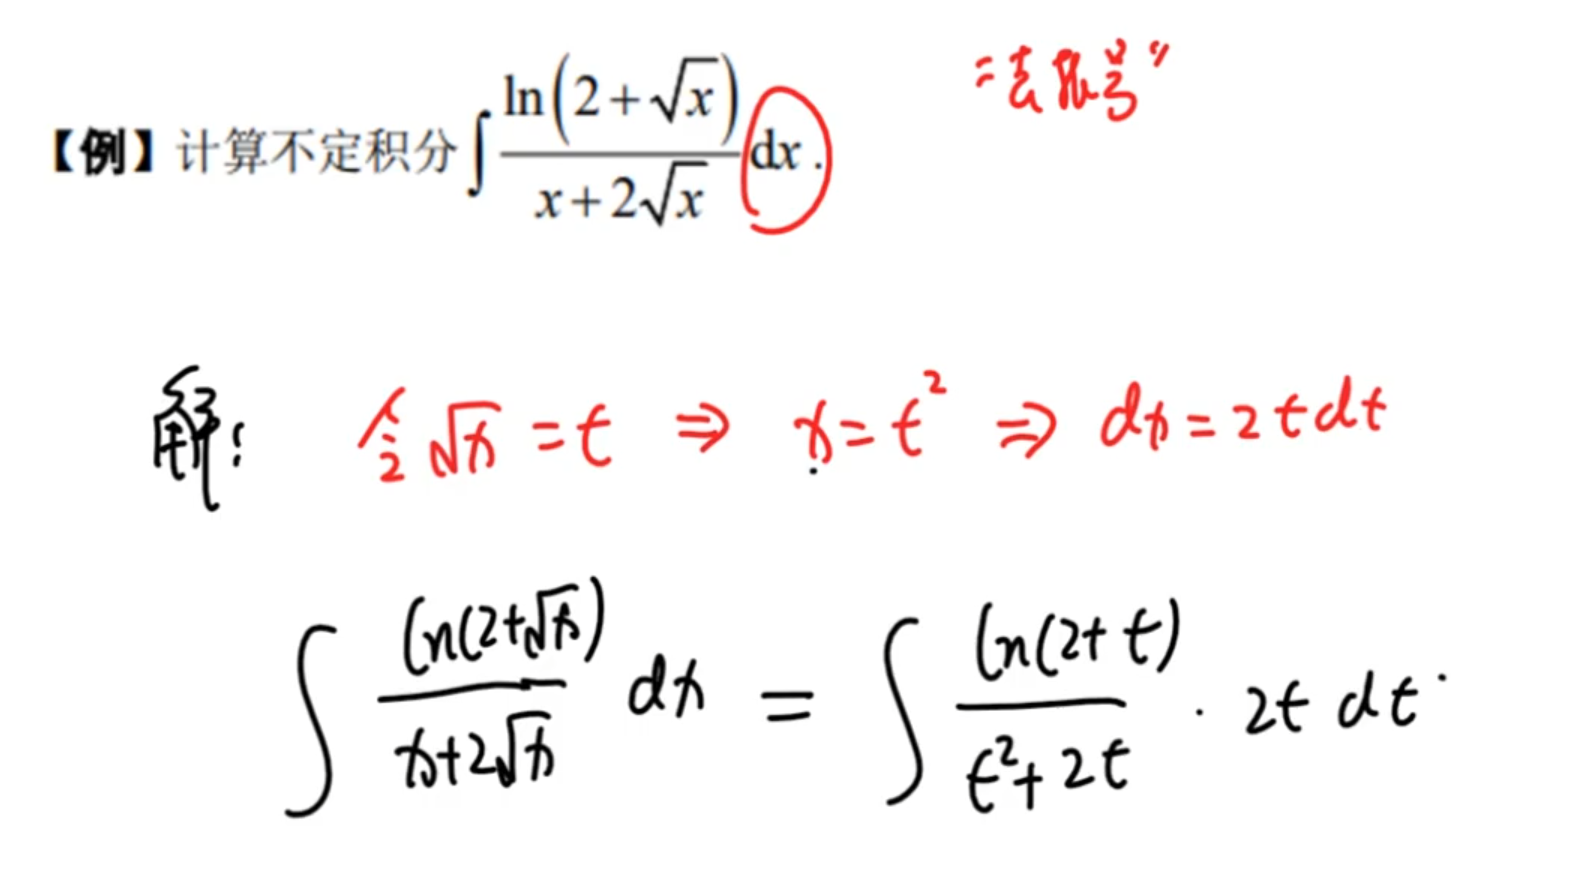 【例】计算不定积分∫ ln(2+√x) / (x+2√x) dx. "去根号"
解: 令√x = t ⇒ x = t² ⇒ dx = 2tdt
∫ ln(2+√x) / (x+2√x) dx = ∫ ln(2+t) / (t²+2t) · 2t dt